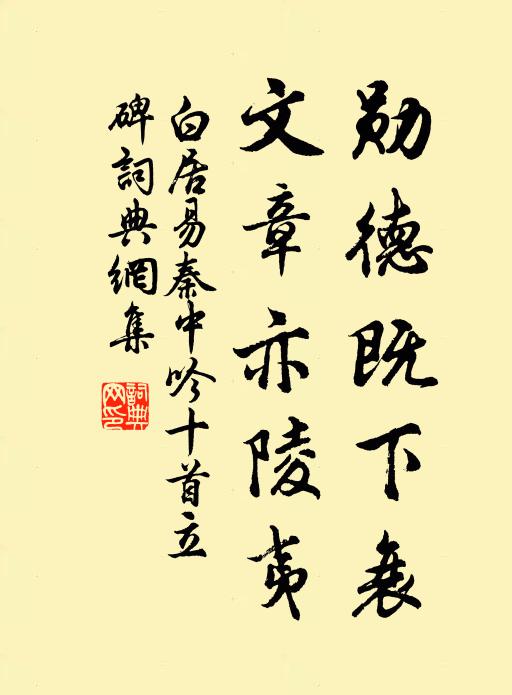 勋德既下衰
文章亦陵夷
白居易秦中吟十首立
碑詞典網集
詞典网印